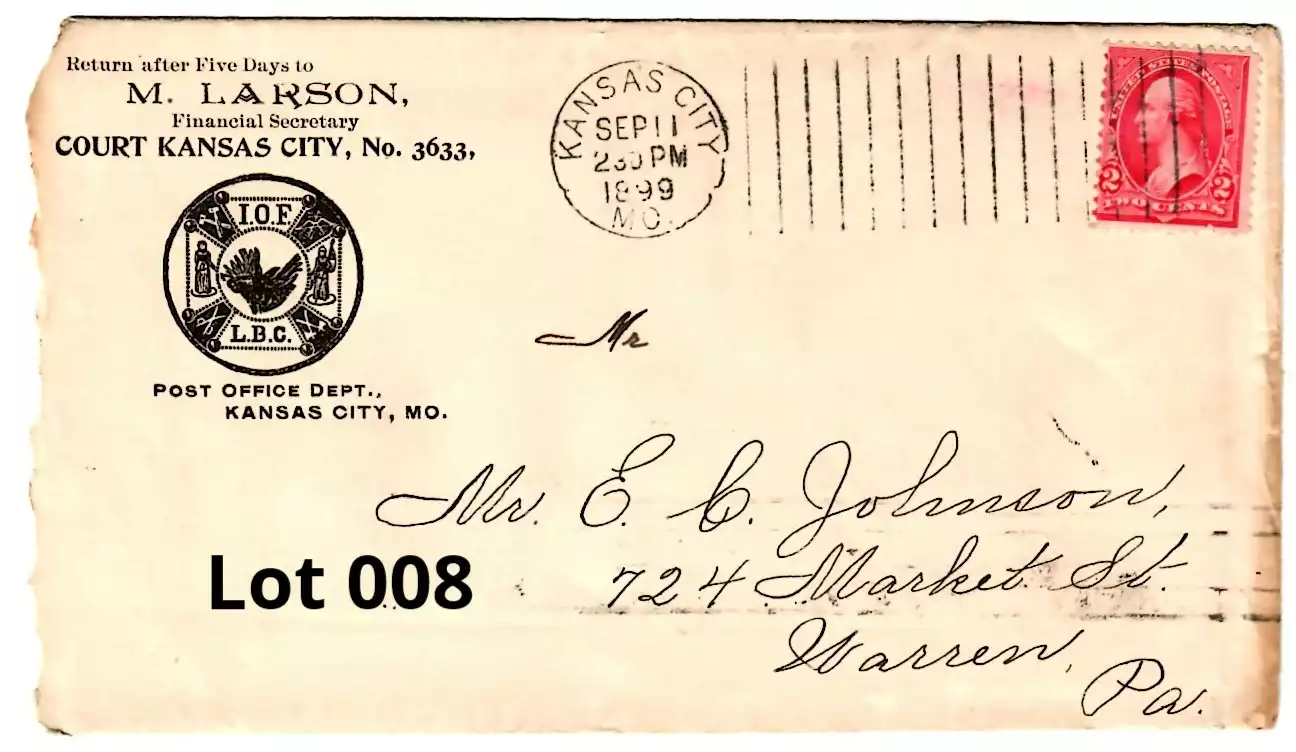 Return after Five Days to
M. LARSON,
Financial Secretary
COURT KANSAS CITY, No. 3633,
I.O.F.
L.B.C.
POST OFFICE DEPT.,
KANSAS CITY, MO.
KANSAS CITY
SEP 11
230 PM
1899
MO.
UNITED STATES POSTAGE
2 2
TWO CENTS
Mr
Mr. E. C. Johnson,
724 Market St.
Warren,
Pa.
Lot 008